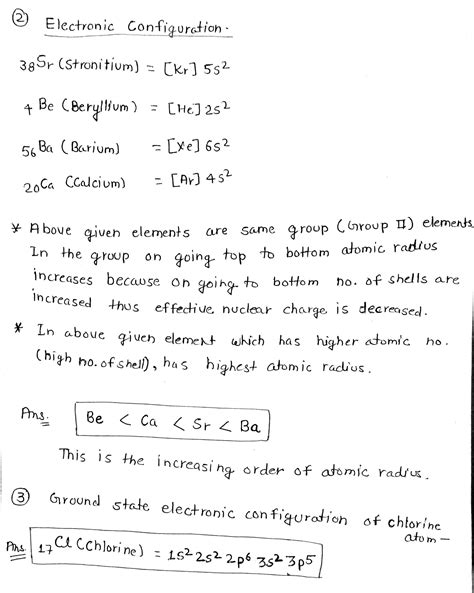 ② Electronic Configuration.
38Sr (Stronitium) = [Kr] 5s²
4 Be (Beryllium) = [He] 2s²
56 Ba (Barium) = [Xe] 6s²
20Ca (Calcium) = [Ar] 4s²
* Above given elements are same group (Group II) elements.
In the group on going top to bottom atomic radius
increases because on going to bottom no. of shells are
increased thus effective nuclear charge is decreased.
* In above given element which has higher atomic no.
(high no. of shell), has highest atomic radius.
Ans. Be < Ca < Sr < Ba
This is the increasing order of atomic radius.
③ Ground state electronic configuration of chlorine
atom —
Ans. 17Cl (Chlorine) = 1s² 2s² 2p⁶ 3s² 3p⁵